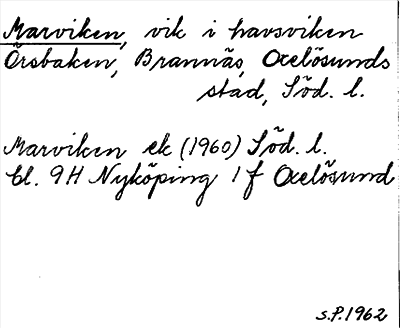 Marviken, vik i havsviken
Örsbaken, Brannäs, Oxelösunds
stad, Söd. l.
Marviken ek (1960) Söd. l.
bl. 9H Nyköping 1 f Oxelösund
S.P. 1962